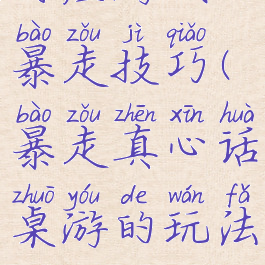 bào zǒu jì qiǎo
暴走技巧(
bào zǒu zhēn xīn huà
暴走真心话
zhuō yóu de wán fǎ
桌游的玩法